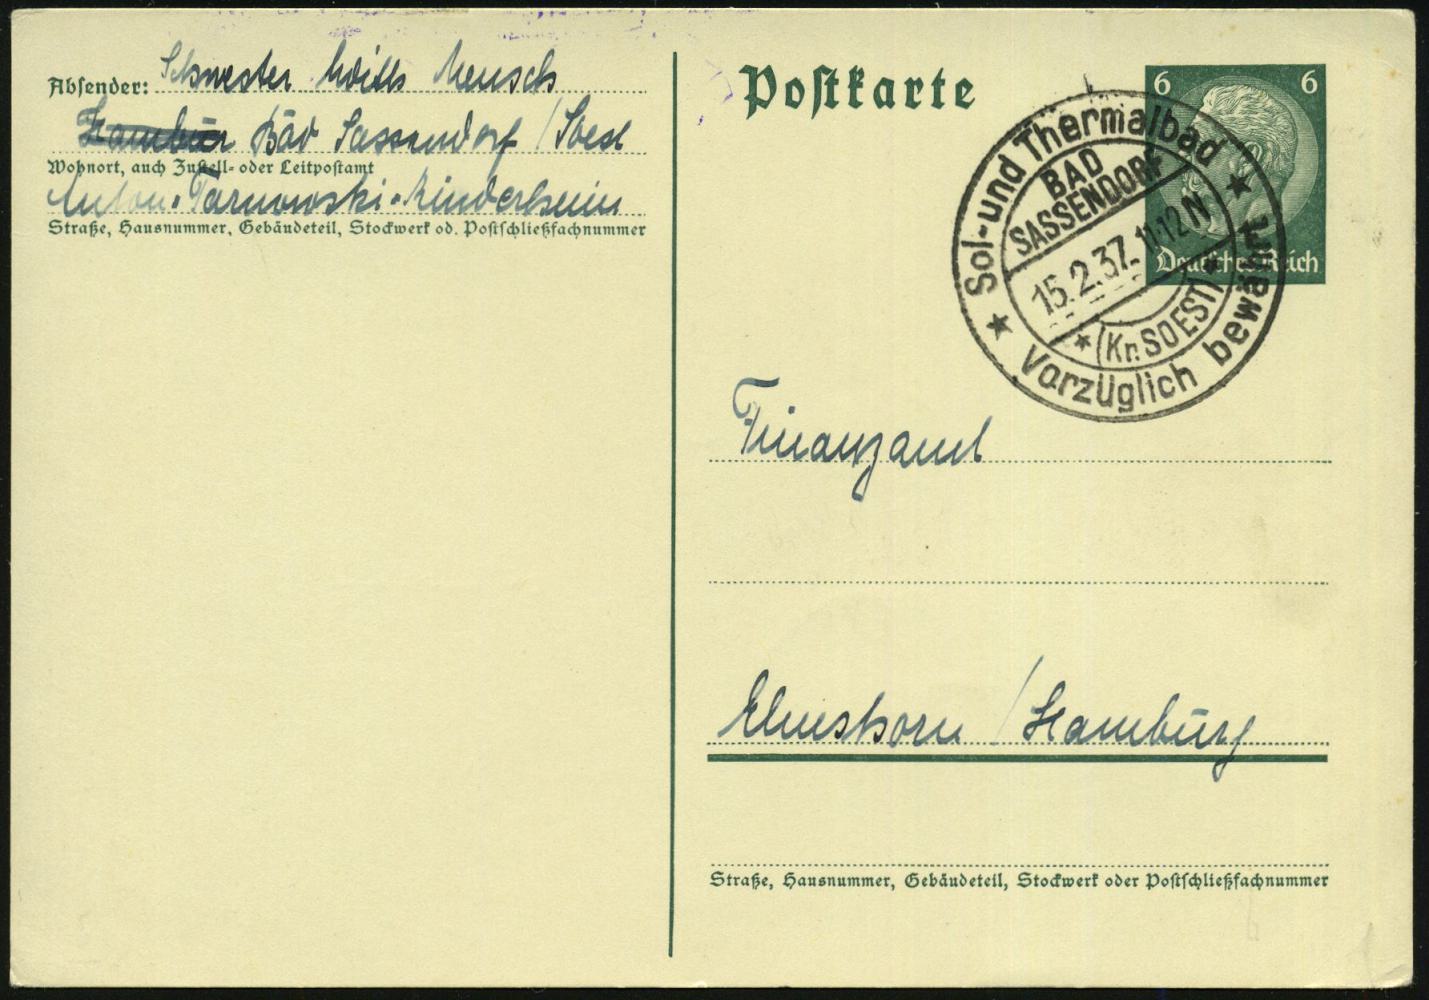 Absender: Schwester Mensch
Hambur Bad Sassendorf / Soest
Wohnort, auch Zustell- oder Leitpostamt
Anton-Tarnowski-Kinderheim
Straße, Hausnummer, Gebäudeteil, Stockwerk od. Postschließfachnummer
Postkarte
6 6
Deutsches Reich
Sol- und Thermalbad
BAD
SASSENDORF
15.2.37. 11-12 N
* (Kr. SOEST) *
Vorzüglich bewährt
Finanzamt
Elmshorn / Hamburg
Straße, Hausnummer, Gebäudeteil, Stockwerk oder Postschließfachnummer